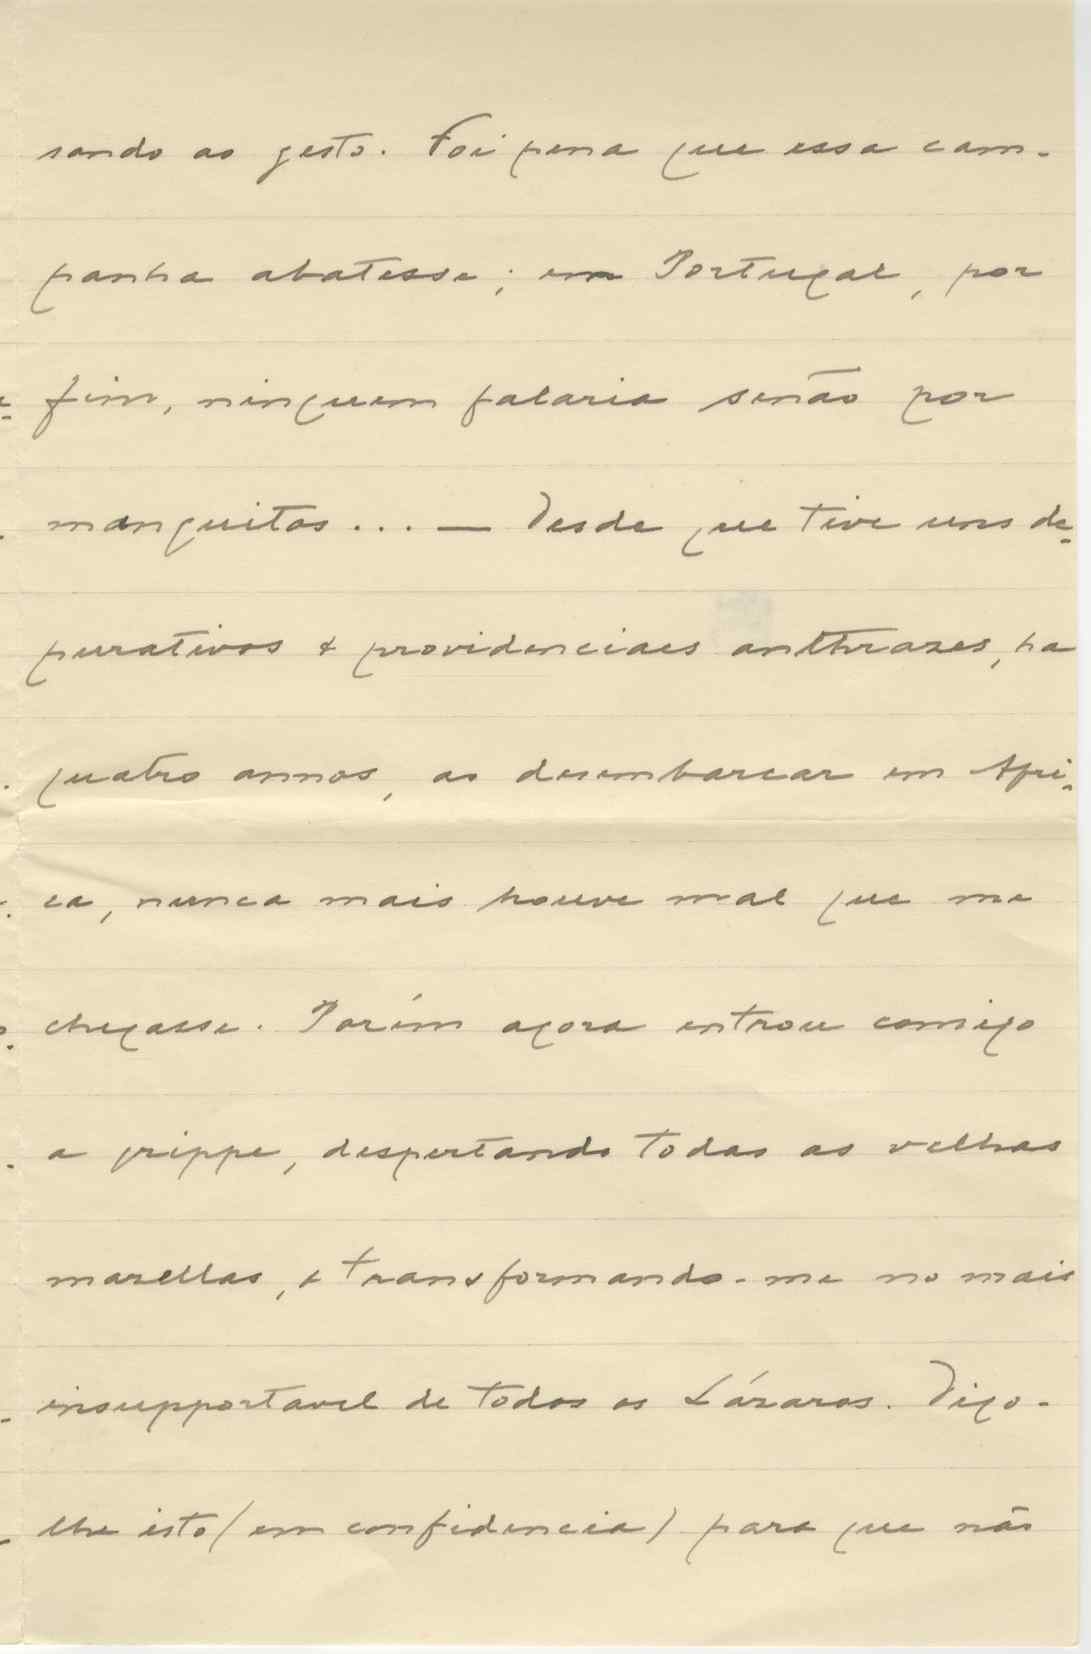 sando ao gesto. Foi pena que essa cam-
panha abatesse; em Portugal, por
fim, ninguem falaria senão por
manguitos... — Desde que tive uns de-
purativos e providenciaes anthrazes, ha
quatro annos, ao desembarcar em Afri-
ca, nunca mais houve mal que me
chegasse. Porém agora entrou comigo
a grippe, despertando todas as velhas
mazellas, e transformando-me no mais
insupportavel de todos os Lázaros. Digo-
lhe isto (em confidencia) para que não